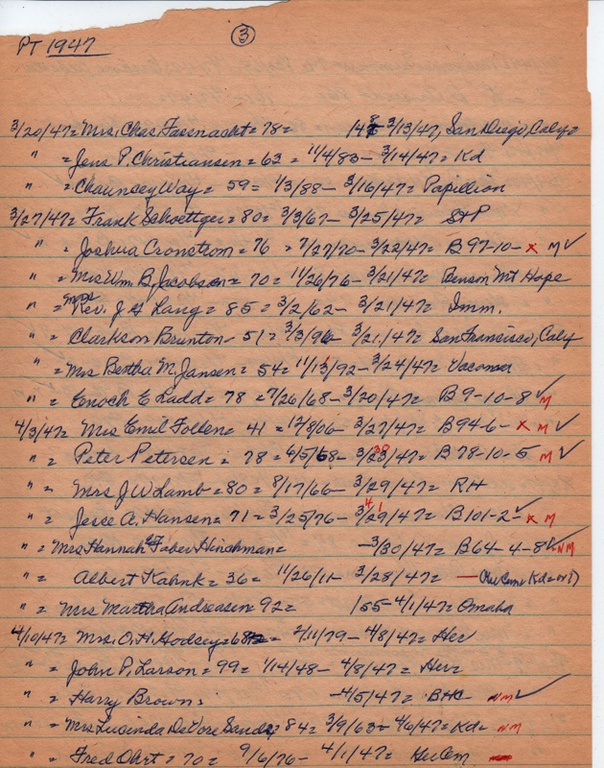 PT 1947 ③
3/20/47= Mrs. Chas. Fassnacht= 78= 3/13/47, San Diego, Calif=
" = Jens P. Christiansen= 63 = 11/4/83- 3/14/47= Kd
" = Chauncey Way= 59= 1/3/88- 3/16/47= Papillion
3/27/47= Frank Schoettger= 80= 3/3/67- 3/25/47= StP
" = Joshua Cronstrom= 76 = 7/27/70- 3/22/47= B 97-10- x M ✓
" = Mrs Wm. B. Jacobsen= 70= 11/26/76- 3/21/47= Benson Mt Hope
" = Mrs Rev. J H Lang= 85= 3/2/62- 3/21/47= Imm.
" = Clarkson Brunton- 51= 3/3/96- 3/21/47= San Francisco, Calif
" = Mrs Bertha M. Jansen= 54= 11/13/92- 3/24/47=
" = Enoch E Ladd= 78 = 7/26/68- 3/20/47= B 9-10-8 ✓ M
4/3/47= Mrs Emil Follen= 41 = 12/8/06- 3/27/47= B94-6- x M ✓
" = Peter Petersen= 78 = 6/5/68- 3/28/47= B 78-10-5 M ✓
" = Mrs J W Lamb= 80= 8/17/66- 3/29/47= RH
" = Jesse A. Hansen= 71= 3/25/76- 4/1/47= B101-2 ✓ x M
" = Mrs Hannah Faber Hinchman= -3/30/47= B64-4-8 ✓ NM
" = Albert Kahnk= 36= 11/26/11- 3/28/47= Kd=
" = Mrs Martha Andreasen 92= 155- 4/1/47= Omaha
4/10/47= Mrs. O. H. Godsey= 68= 2/11/79- 4/8/47= Her
" = John P. Larson= 99= 1/14/48- 4/8/47= Her
" = Harry Brown= -4/5/47= BHC NM ✓
" = Mrs Lucinda DeVore Sands= 84= 3/9/63- 4/6/47= Kd= NM
" = Fred Ohrt= 70= 9/6/76- 4/1/47=